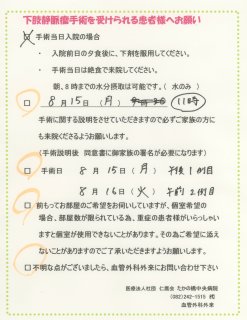 下肢静脈瘤手術を受けられる患者様へお願い
手術当日入院の場合
・入院前日の夕食後に、下剤を服用してください。
・手術当日は絶食で来院してください。
朝、8時までの水分摂取は可能です。(水のみ)
□ 8月15日(月) 11時
手術に関する説明をさせていただきますので必ずご家族の方に
も来院くださるようお願いします。
(手術説明後 同意書に御家族の署名が必要になります)
□ 手術日 8月15日(月) 午後1例目
8月16日(火) 午前2例目
□ 前もってお部屋のご希望をお伺いしていますが、個室希望の
場合、部屋数が限られている為、重症の患者様がいらっしゃい
ますと個室が使用できないことがあります。その為ご希望に添え
ないことがありますのでご了承いただきますようお願いします。
□ 不明な点がございましたら、血管外科外来にお問い合わせ下さい
医療法社団 仁鷹会 たかの橋中央病院
(082)242-1515 ㈹
血管外科外来